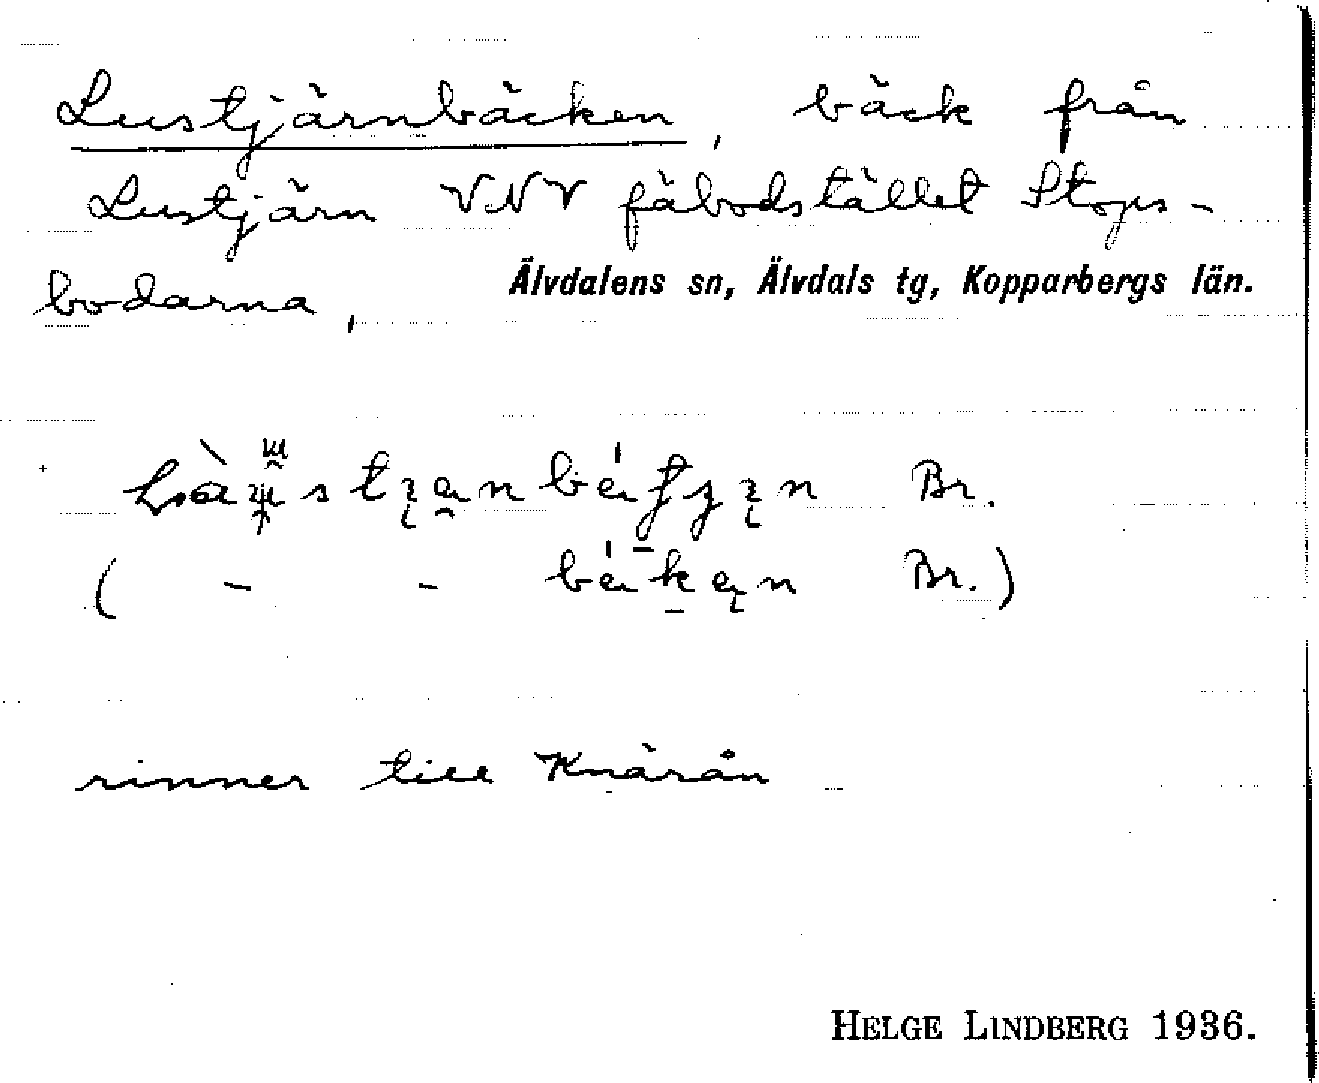 Lustjärnbäcken, bäck från
Lustjärn VNV fäbodstället Stops-
bodarna,
Älvdalens sn, Älvdals tg, Kopparbergs län.
Br.
( - - Br.)
rinner till Knärån
HELGE LINDBERG 1936.